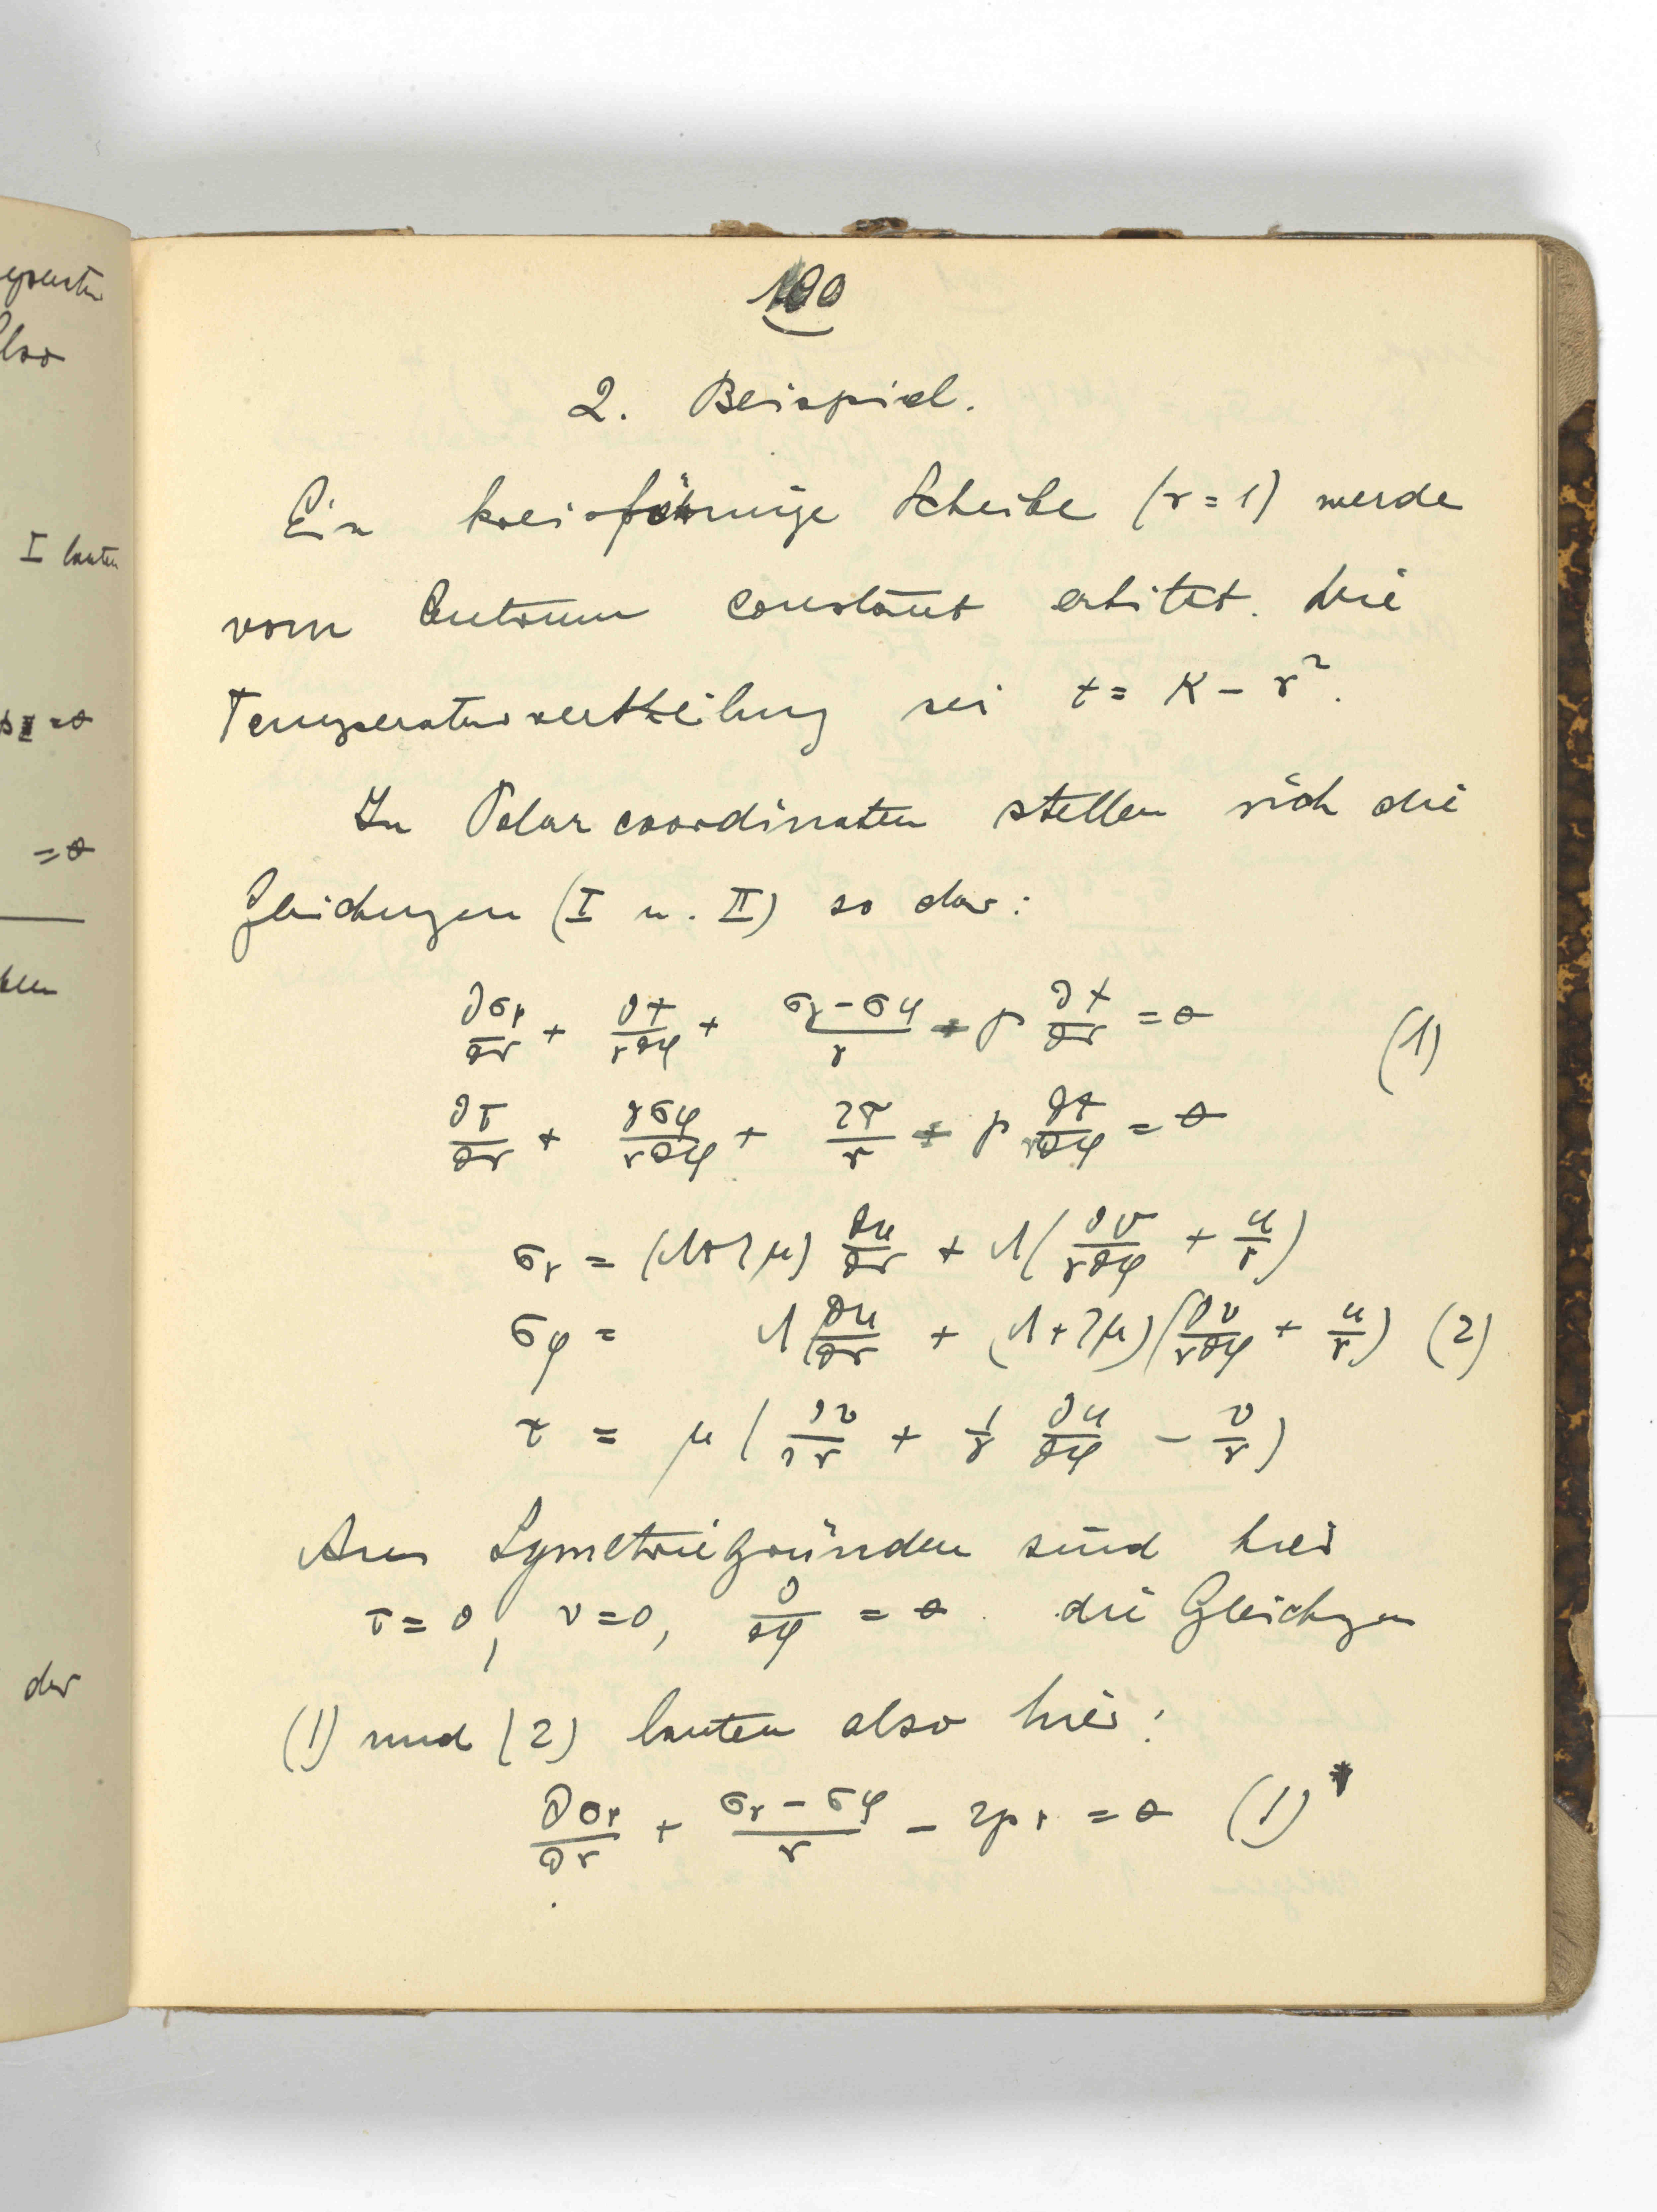 epunkte
Also
I lauten
= 0
= 0
der
100
2. Beispiel.
Ein kreisförmige Scheibe (r = 1) werde
vom Centrum constant erhitzt. Die
Temperaturvertheilung sei t = K − r².
In Polarcoordinaten stellen sich die
Gleichungen (I u. II) so dar:
∂σr/∂r + ∂τ/r∂φ + (σr − σφ)/r + p ∂t/∂r = 0 (1)
∂τ/∂r + ∂σφ/r∂φ + 2τ/r + p ∂t/r∂φ = 0
σr = (λ+2μ) ∂u/∂r + λ(∂v/r∂φ + u/r)
σφ = λ ∂u/∂r + (λ+2μ)(∂v/r∂φ + u/r) (2)
τ = μ(∂v/∂r + 1/r ∂u/∂φ − v/r)
Aus Symetriegründen sind hier
τ = 0, v = 0, ∂/∂φ = 0. die Gleichgen
(1) und (2) lauten also hier:
∂σr/∂r + (σr − σφ)/r − 2pr = 0 (1)*